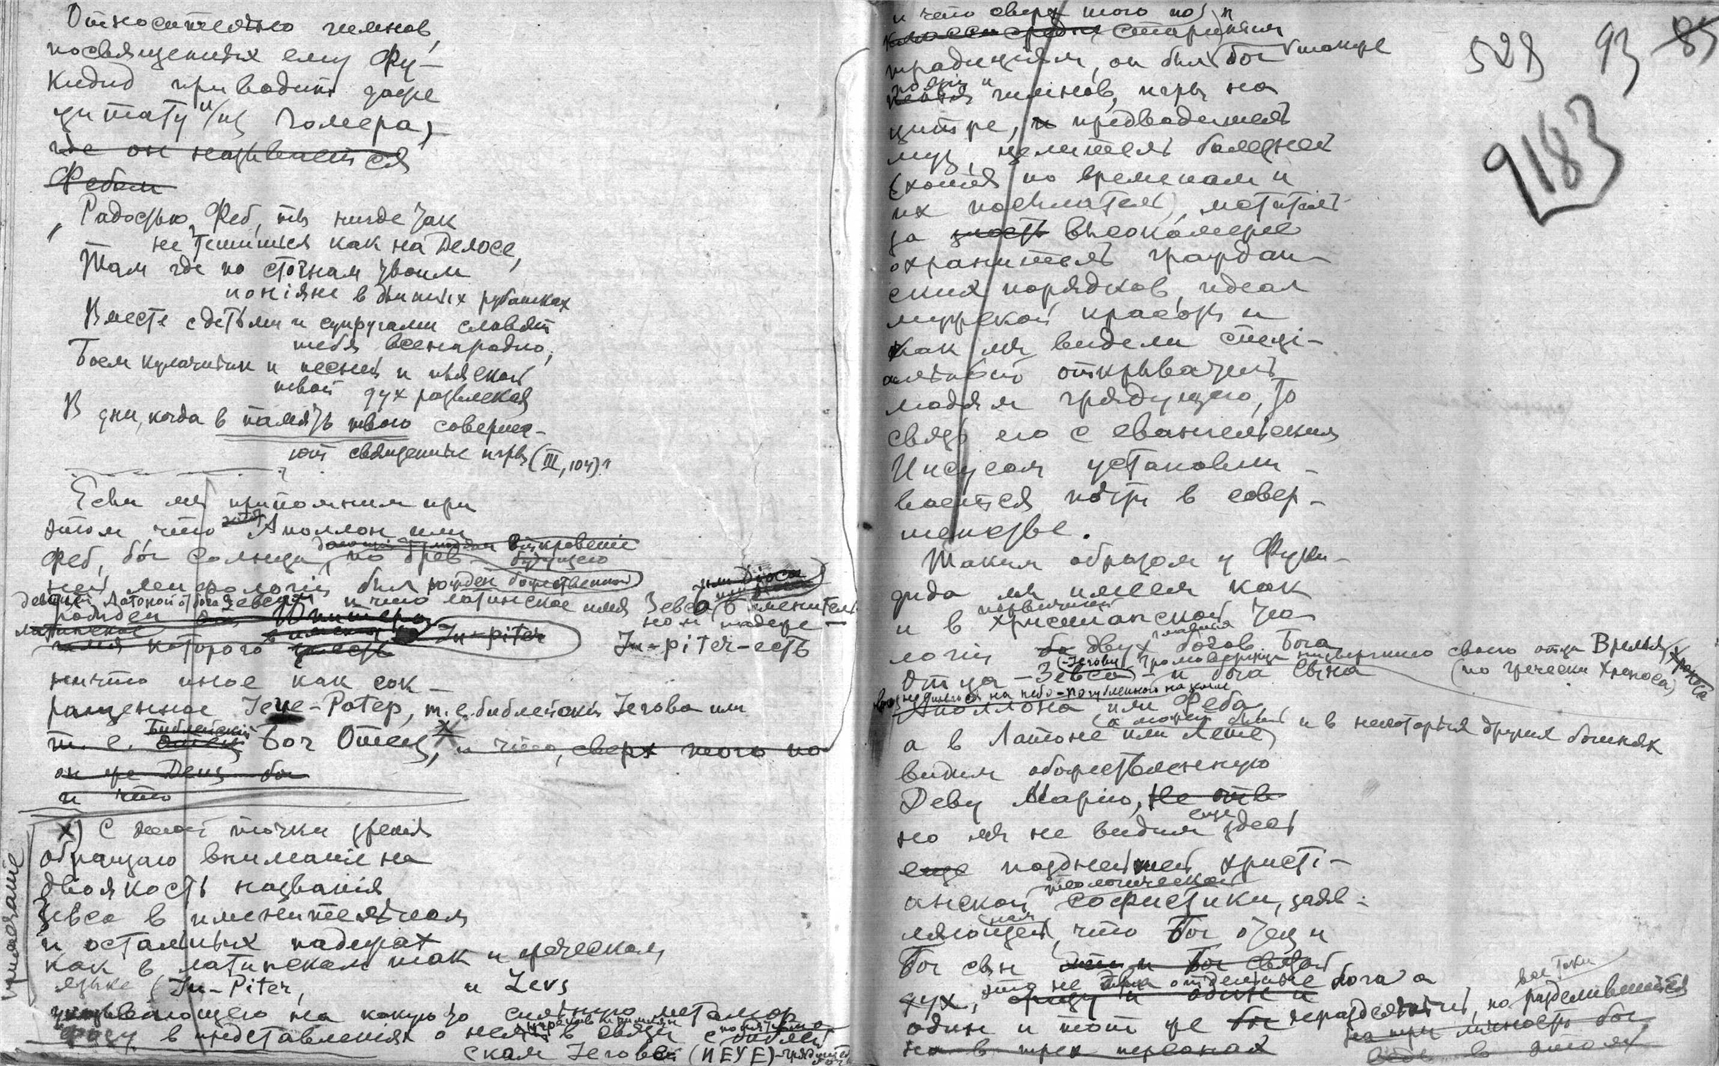 Относительно гимнов,
посвященных ему Фу-
кидид приводит даже
цитату из Гомера,
где он называется
Фебом
„Радостью, Феб, ты нигде так
не тешишься как на Делосе,
Там где по стогнам твоим
иониане в длинных рубашках
Вместе с детьми и супругами славят
тебя всенародно,
Боем кулачным и песней и пляской
твой дух развлекая
В дни, когда в память твою соверша-
ют священные игры (III, 104)."
Если мы припомним при
этом что Аполлон или
Феб, бог солнца, по древ-
ней мифологии был рожден
девицей Латоной от бога Зевса и что латинское имя Зевса в именитель-
ном падеже
Iu-piter
Iu-piter-есть
ничто иное как сок-
ращенное Iеуе-Pater, т.е. библейский Iегова или
т. е. Библейский Бог Отец, и что, сверх того по
он же Бог
и что
примечание
х) С этой точки зрения
обращаю внимание на
двоякость названiя
Зевса в именительном
и остальных падежах
как в латинском так и греческом
языке (Iu-Piter, и Zevs
указывающего на какую то сильную метамор-
фозу в представлениях о нем в связи с библей-
ским Iеговой (ИЕУЕ)
и что сверх того по
старинным
традициям, он был бог также
гимнов, игры на
цитре, предводитель
муз, целитель болезней
(хотя по временам и
их посылатель), мститель
за высокомерие
охранитель граждан-
ских порядков, идеал
мужской красоты и
как мы видели специ-
ально открыватель
людям грядущего, то
связь его с евангельским
Иисусом установли-
вается почти в совер-
шенстве.
Таким образом у Фуки-
дида мы имеем как
и в первичной христианской тео-
логии двух главных богов Бога
Отца - Зевса (-Iегову) громовержца низвергшего своего отца Время, Хроноса
(по гречески Хроноса)
и бога сына
Аполлона или Феба,
а в Латоне (а может быть или Лете) и в некоторых других богинях
видим обожествленную
Деву Марию,
но мы не видим еще здесь
еще позднейшей христи-
анской теологической софистики, заяв-
ляющей нам, что Бог отец и
Бог сын и Бог святой
дух, это не три отдельные бога а
один и тот же нераздельный, но все таки разделившийся
на три личности бог
но в трех персонах
528 93 85
9183